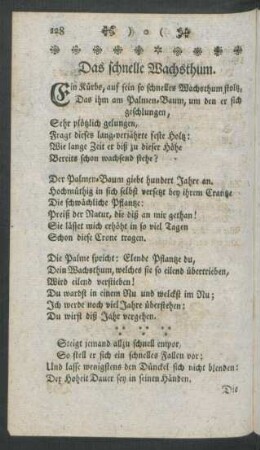 128 ) o (
Das schnelle Wachsthum.
Ein Kürbs, auf sein so schnelles Wachsthum stoltz,
Das ihm am Palmen-Baum, um den er sich
geschlungen,
Sehr plötzlich gelungen,
Fragt dieses lang-verjährte feste Holtz:
Wie lange Zeit er biß zu dieser Höhe
Bereits schon wachsend stehe?
Der Palmen-Baum giebt hundert Jahr an.
Hochmüthig in sich selbst versetzt bey ihrem Crantze
Die schwächliche Pflantze:
Preiß der Natur, die diß an mir gethan!
Sie lässet mich erhöht in so viel Tagen
Schon diese Crone tragen.
Die Palme spricht: Elende Pflantze du,
Dein Wachsthum, welches sie so eilend übertrieben,
Wird eilend verstieben!
Du wardst in einem Nu und welckst im Nu;
Ich werde noch viel Jahre überstehen;
Du wirst diß Jahr vergehen.
Steigt jemand allzu schnell empor,
So stell er sich ein schnelles Fallen vor;
Und lasse wenigstens den Dünckel sich nicht blenden!
Der Hoheit Dauer sey in seinen Händen.
Die